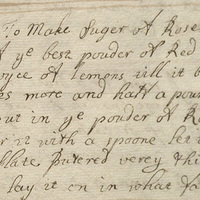 To Make Suger of Rose
f ye best pouder of Red
yce of Lemens till it b
es more and half a pou
put in ye pouder of R
r it with a spoone let i
late, butered verey thi
lay it on in what fa